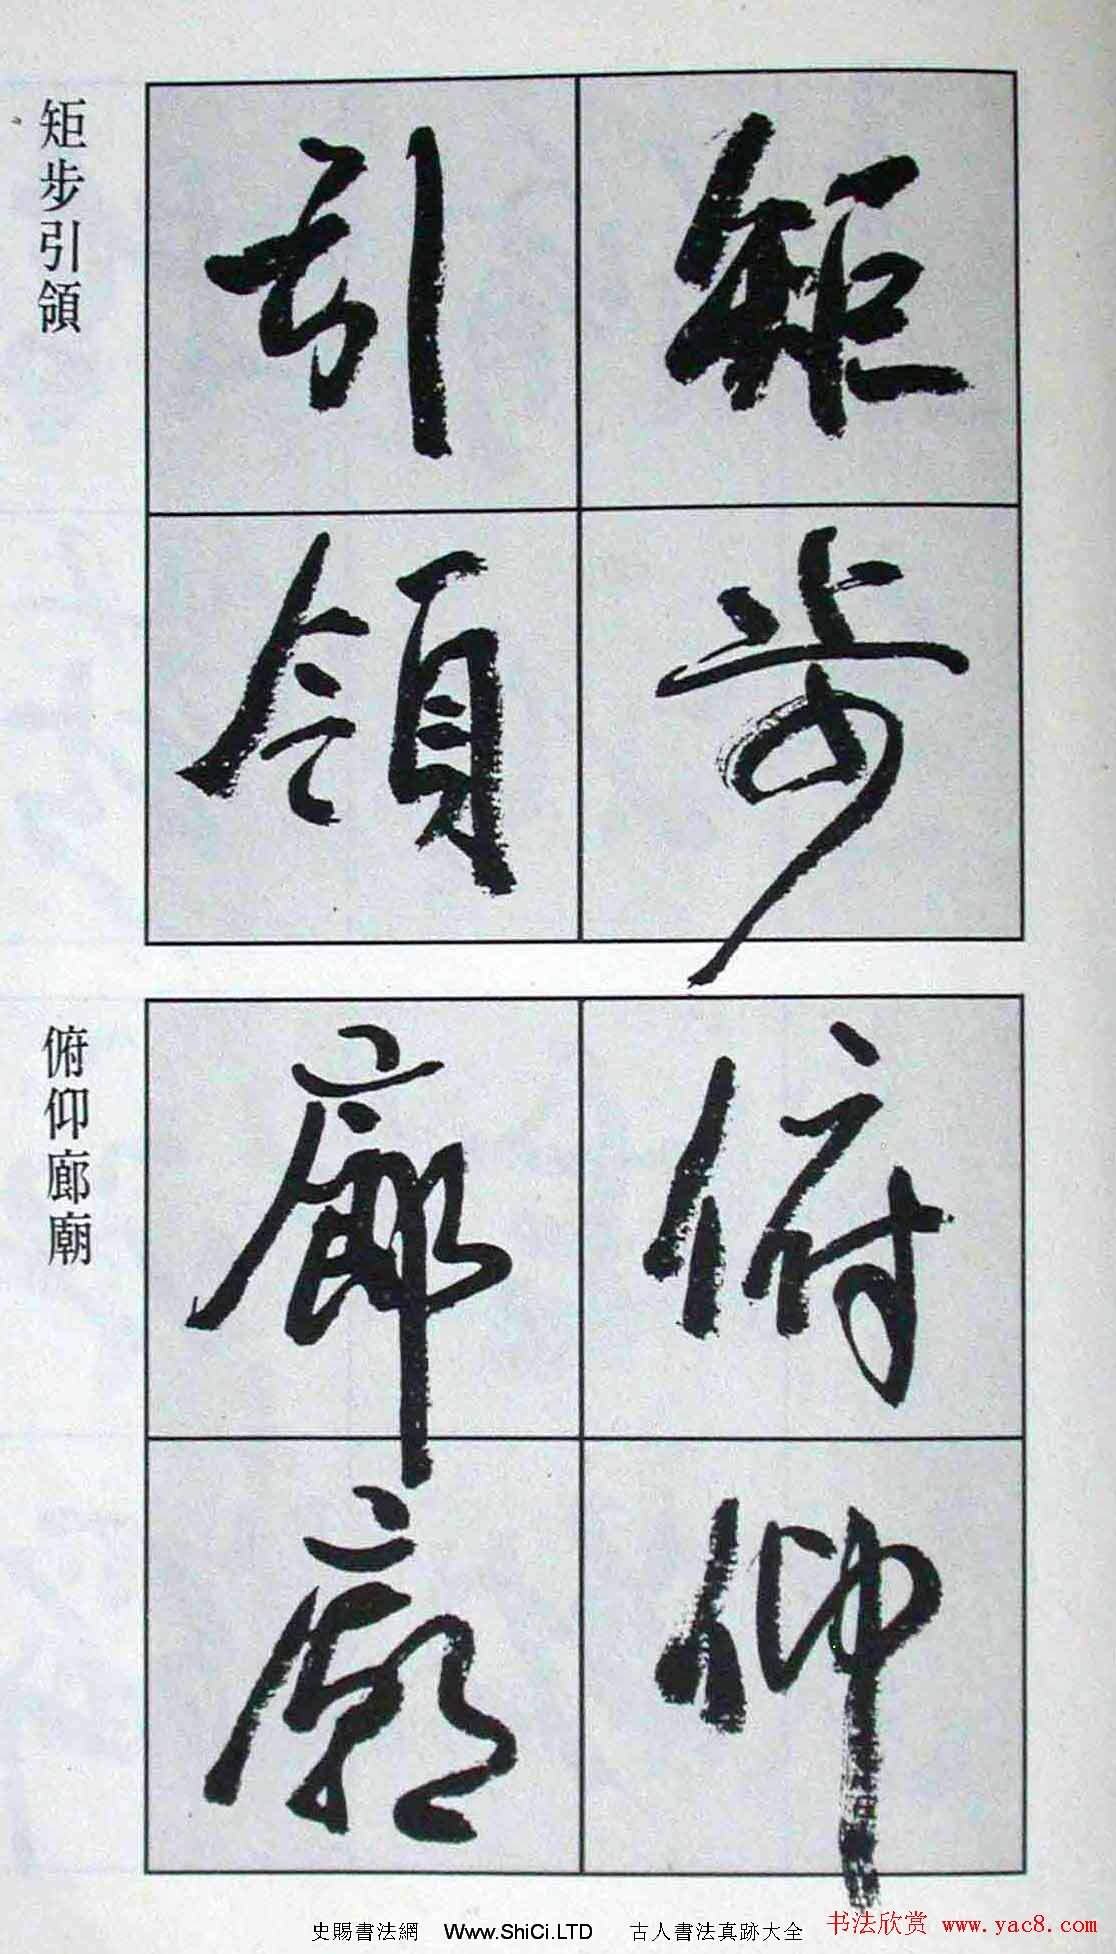 矩步
引領
矩步引領
俯仰
廊廟
俯仰廊廟
史賜書法網 Www.ShiCi.LTD 古人書法真跡大全
书法欣赏 www.yac8.com